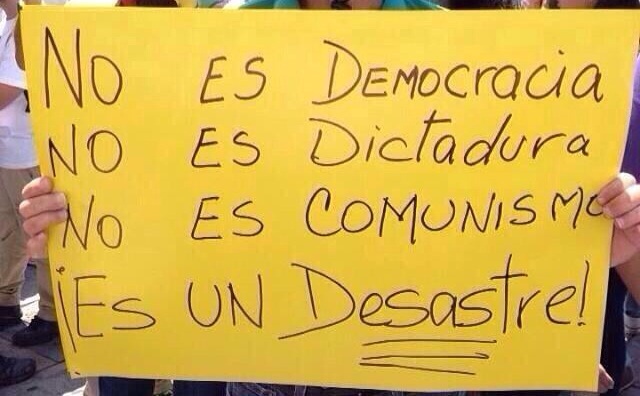 No ES DEMOCRACIA
NO ES DICTADURA
No ES COMUNISMO
¡Es UN Desastre!